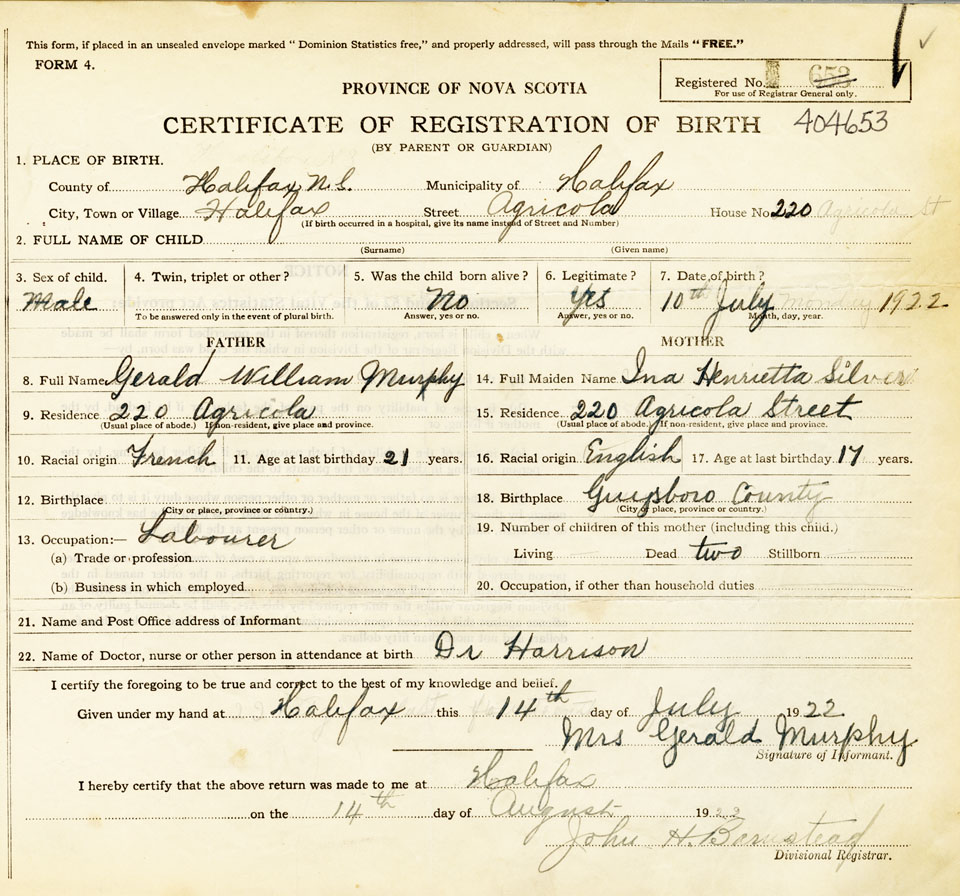 This form, if placed in an unsealed envelope marked “ Dominion Statistics free,” and properly addressed, will pass through the Mails “FREE.”
FORM 4.
Registered No. 653
For use of Registrar General only.
PROVINCE OF NOVA SCOTIA
CERTIFICATE OF REGISTRATION OF BIRTH 404653
(BY PARENT OR GUARDIAN)
1. PLACE OF BIRTH.
County of Halifax N.S. Municipality of Halifax
City, Town or Village Halifax Street Agricola House No 220 Agricola St
(If birth occurred in a hospital, give its name instead of Street and Number)
2. FULL NAME OF CHILD
(Surname) (Given name)
3. Sex of child. 4. Twin, triplet or other? 5. Was the child born alive? 6. Legitimate? 7. Date of birth?
Male No Yes 10th July Monday 1922
To be answered only in the event of plural birth. Answer, yes or no. Answer, yes or no. Month, day, year.
FATHER MOTHER
8. Full Name Gerald William Murphy 14. Full Maiden Name Ina Henrietta Silver
9. Residence 220 Agricola 15. Residence 220 Agricola Street
(Usual place of abode.) If non-resident, give place and province. (Usual place of abode.) If non-resident, give place and province.
10. Racial origin French 11. Age at last birthday 21 years. 16. Racial origin English 17. Age at last birthday 17 years.
12. Birthplace 18. Birthplace Guysboro County
(City or place, province or country.) (City or place, province or country.)
13. Occupation:— Labourer 19. Number of children of this mother (including this child.)
(a) Trade or profession Living Dead two Stillborn
(b) Business in which employed 20. Occupation, if other than household duties
21. Name and Post Office address of Informant
22. Name of Doctor, nurse or other person in attendance at birth Dr Harrison
I certify the foregoing to be true and correct to the best of my knowledge and belief.
Given under my hand at Halifax this 14th day of July 1922
Mrs Gerald Murphy
Signature of Informant.
I hereby certify that the above return was made to me at Halifax
on the 14th day of August 19
John H. Barnstead
Divisional Registrar.